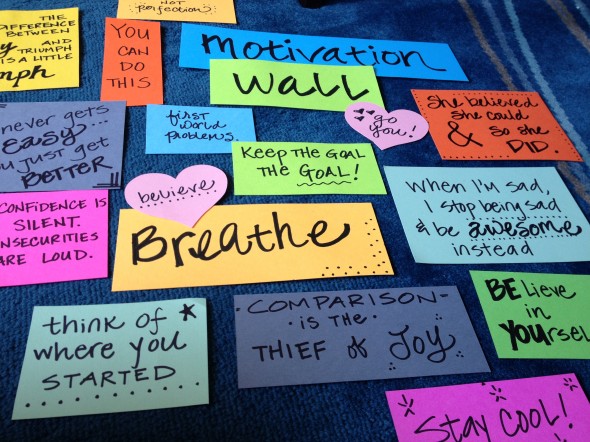 NOT
perfection!
THE
DIFFERENCE
BETWEEN
y AND
TRIUMPH
IS A LITTLE
mph
YOU
CAN
DO
THIS
motivation
WALL
go
you!
She believed
she could
& so she
DID.
never gets
EASY...
u just get
BETTER
first
world
problems.
KEEP THE GOAL
THE GOAL!
believe
Breathe
When I'm sad,
I stop being sad
& be awesome
instead
CONFIDENCE IS
SILENT.
NSECURITIES
ARE LOUD.
think of
where you
STARTED
COMPARISON
is THE
THIEF of Joy
BELieve
in
YOUrsel
Stay COOL!